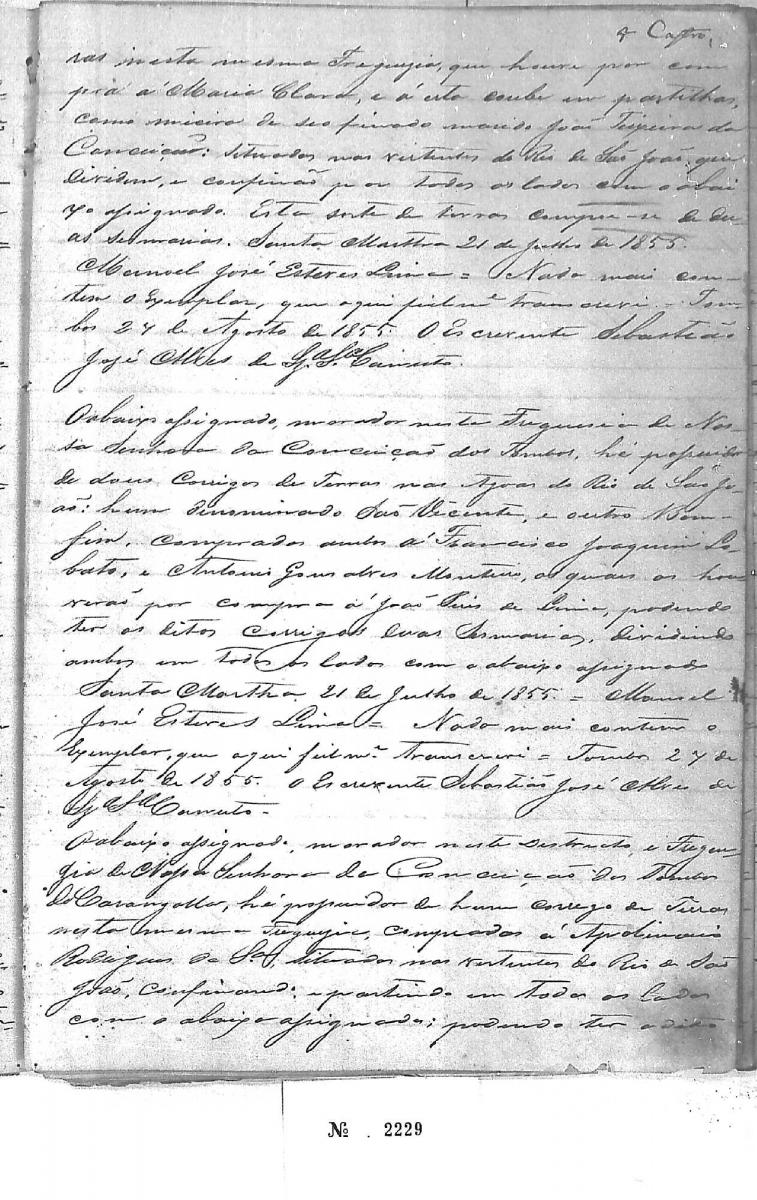 4 Castro,
ras nesta mesma Freguezia, que houve por com
pra á Maria Clara, e á esta coube em partilhas,
como meieira de seo finado marido João Teixeira da
Conceição: situadas nas vertentes do Rio de São João, que
dividem, e confinão por todos os lados com o abai
xo assignado. Esta sorte de terras compoe-se de du
as sesmarias. Santa Martha 21 de Julho de 1855.
Manoel José Esteves Lima = Nada mais con-
tem o Exemplar, que aqui fielmᵉ transcrevi = Tom-
bos 27 de Agosto de 1855. O Escrevente Sebastião
José Alves de
O abaixo assignado, morador nesta Freguesia de Nos-
sa Senhora da Conceição dos Tombos, hé possuidor
de dous Corrigos de Terras nas Agoas do Rio de São Jo-
ão: hum denominado São Vicente, e outro Bom-
fim, comprados ambos á Francisco Joaquim Lo-
bato, e Antonio Gonsalves Monteiro, os quaes os hou
verão por compra á João de Lima, podendo
ter os ditos corrigos duas Sesmarias, dividindo
ambos em todos os lados com o abaixo assignado
Santa Martha 21 de Julho de 1855. = Manoel
José Esteves Lima = Nada mais contem o
Exemplar, que aqui fielmᵉ transcrevi = Tombos 27 de
Agosto de 1855. O Escrevente Sebastião José Alves de
O abaixo assignado, morador neste Destricto, e Fregue-
zia de Nossa Senhora da Conceição dos Tombos
do Carangolla, hé possuidor de hum corrego de Terras
nesta mesma Freguezia, compradas á Apolinario
Rodrigues da Sᵃ, situados nas vertentes do Rio de São
João, confinando, e partindo em todos os lados
com o abaixo assignado; podendo ter o dito
Nº 2229